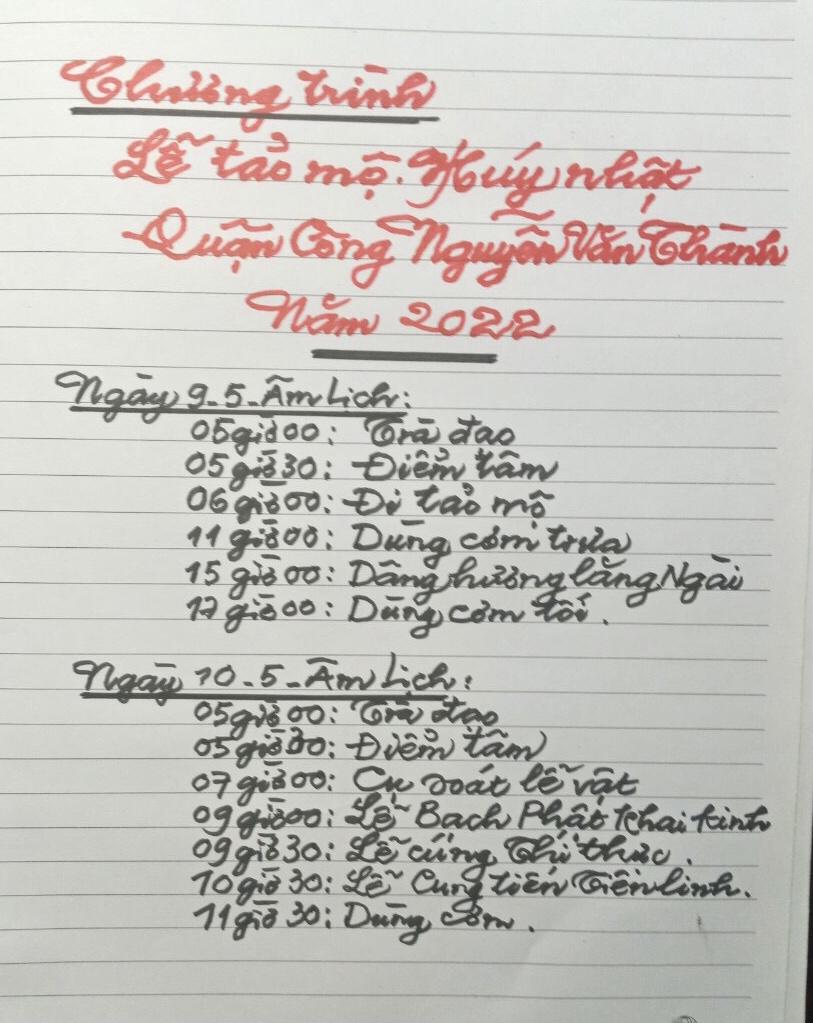 Chương trình
Lễ tảo mộ. Húy nhật
Quận Công Nguyễn Văn Thành
Năm 2022
Ngày 9-5-Âm Lịch:
05giờ00: Trà đạo
05giờ30: Điểm tâm
06giờ00: Đi tảo mộ
11giờ00: Dùng cơm trưa
15giờ00: Dâng hương lăng Ngài
17giờ00: Dùng cơm tối.
Ngày 10-5-Âm Lịch:
05giờ00: Trà đạo
05giờ30: Điểm tâm
07giờ00: soát lễ vật
09giờ00: Lễ Bạch Phật Khai Kinh
09giờ30: Lễ cúng Thí thực.
10giờ30: Lễ Cung tiến Tiên linh.
11giờ30: Dùng cơm.